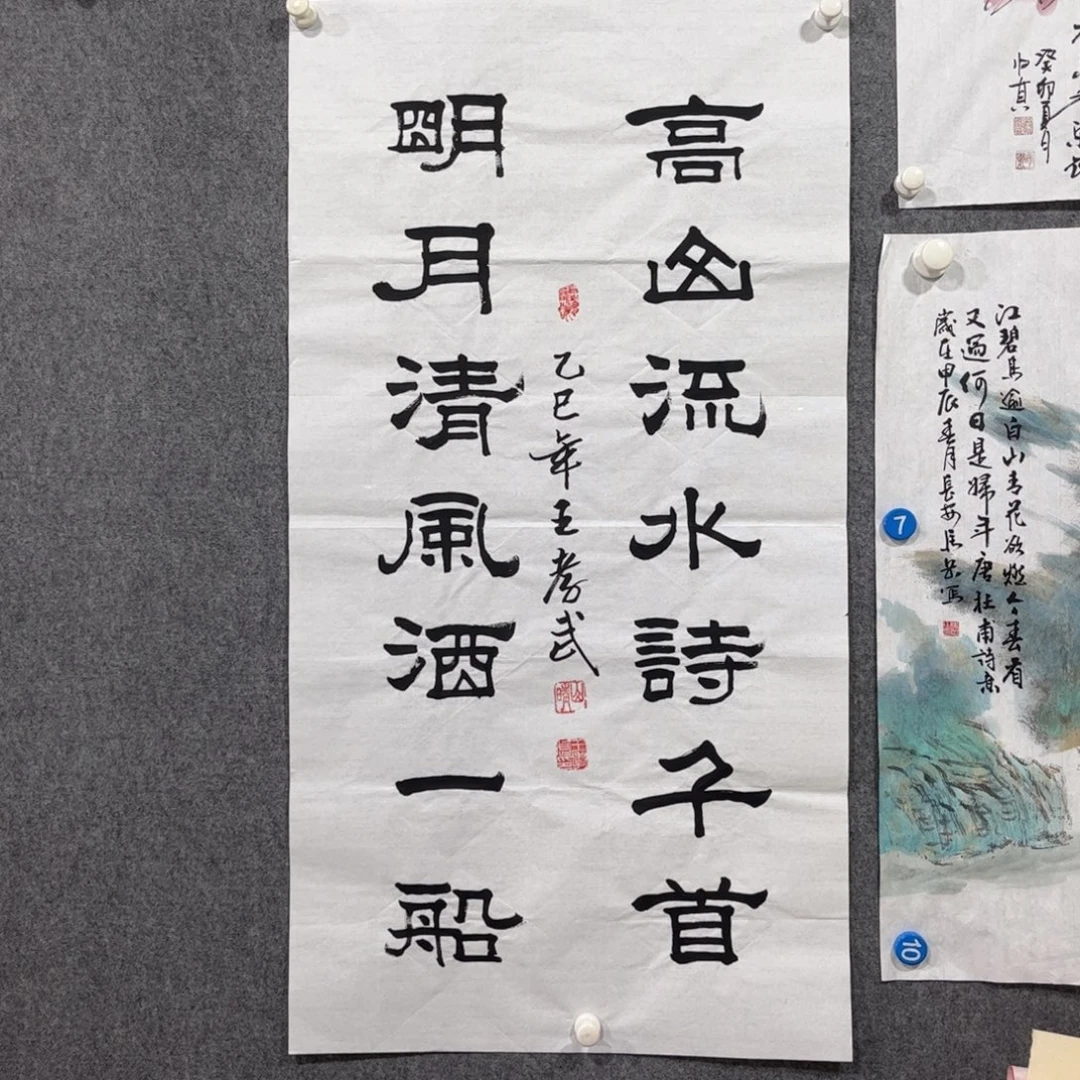 高山流水詩千首
乙巳年王孝武
明月清風酒一船
癸卯夏月
江碧鳥逾白山青花欲燃今春看
又過何日是歸年唐杜甫詩意
歲在甲辰春月長安
7
10